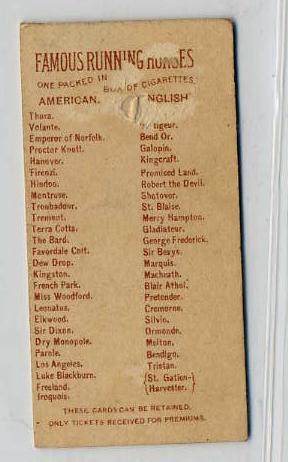 FAMOUS RUNNING HORSES
ONE PACKED IN BOX OF CIGARETTES
AMERICAN. ENGLISH
Thora.
Volante. tigeur.
Emperor of Norfolk. Bend Or.
Procter Knott. Galopin.
Hanover. Kingcraft.
Firenzi. Promised Land.
Hindoo. Robert the Devil.
Montrose. Shotover.
Troubadour. St. Blaise.
Tremont. Merry Hampton.
Terra Cotta. Gladiateur.
The Bard. George Frederick.
Favordale Colt. Sir Bevys.
Dew Drop. Marquis.
Kingston. Macheath.
French Park. Blair Athol.
Miss Woodford. Pretender.
Leonatus. Cremorne.
Elkwood. Silvio.
Sir Dixon. Ormonde.
Dry Monopole. Melton.
Parole. Bendigo.
Los Angeles. Tristan.
Luke Blackburn. (St. Gatien-)
Freeland. (Harvester.)
Iroquois.
THESE CARDS CAN BE RETAINED.
ONLY TICKETS RECEIVED FOR PREMIUMS.